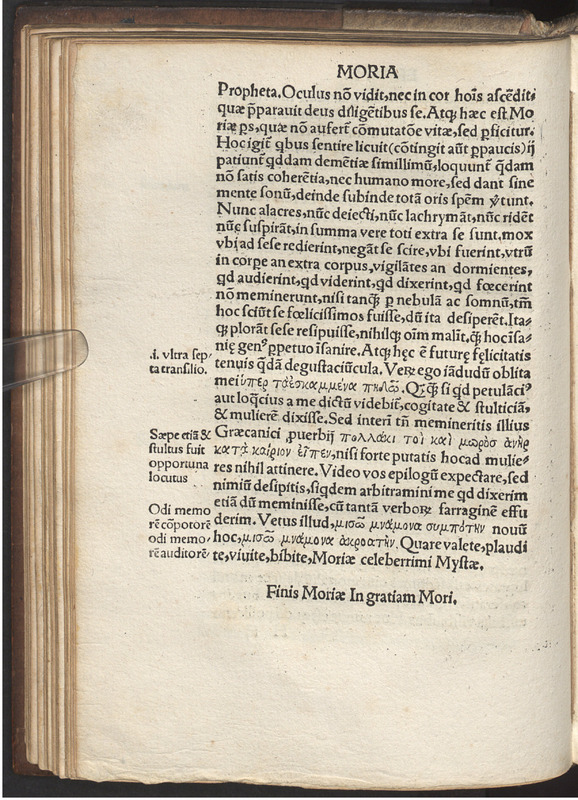 MORIA
Propheta. Oculus nō vidit, nec in cor hoīs ascēdit:
quæ p̄parauit deus diligētibus se. Atq; hæc est Mo
riæ ps, quæ nō aufert̃ cōmutatōe vitæ, sed pficitur.
Hoc igit̃ qbus sentire licuit (cōtingit aūt ppaucis) ij
patiunt̃ qddam demētiæ simillimū, loquunt̃ q̄dam
nō satis coherētia, nec humano more, sed dant sine
mente sonū, deinde subinde totā oris spēm ṽtunt.
Nunc alacres, nūc deiecti, nūc lachrymāt, nūc ridēt
nūc suspirāt, in summa vere toti extra se sunt. mox
vbi ad sese redierint, negāt se scire, vbi fuerint, vtrū
in corpe an extra corpus, vigilātes an dormientes,
qd audierint, qd viderint, qd dixerint, qd fœcerint
nō meminerunt, nisi tanq̄; p nebulā ac somnū, tm̄
hoc sciūt se fœlicissimos fuisse, dū ita desiperēt. Ita-
q; plorāt sese resipuisse, nihilq; oīm malīt. q̄; hoc īsa-
nię gen⁹ ppetuo īsanire. Atq; hęc ē futurę fęlicitatis
.i. vltra sep-
ta transilio.
tenuis q̄dā degustaciūcula. Veꝝ ego iādudū oblita
mei ὑπὲρ τὰ ἐσκαμμένα πηδῶ. Qꝗ̄; si qd petulāci⁹
aut loq̄cius a me dictū videbit̃, cogitate & stulticiā,
& mulierē dixisse. Sed interī tn̄ memineritis illius
Sæpe etiā &
stultus fuit
opportuna
locutus
Græcanici ꝓuerbij πολλάκι τοὶ καὶ μωρὸσ ἀνὴρ
κατὰ καίριον εἶπεν, nisi forte putatis hoc ad mulie-
res nihil attinere. Video vos epilogū expectare, sed
nimiū desipitis, siqdem arbitramini me qd dixerim
etiā dū meminisse, cū tantā verboꝝ farraginē effu
Odi memo
rē cōpotorē
odi memo-
rē auditorē
derim. Vetus illud, μισῶ μνάμονα συμπότην nouū
hoc, μισῶ μνάμονα ἀκροατὴν. Quare valete, plaudi
te, viuite, bibite, Moriæ celeberrimi Mystæ.
Finis Moriæ In gratiam Mori.